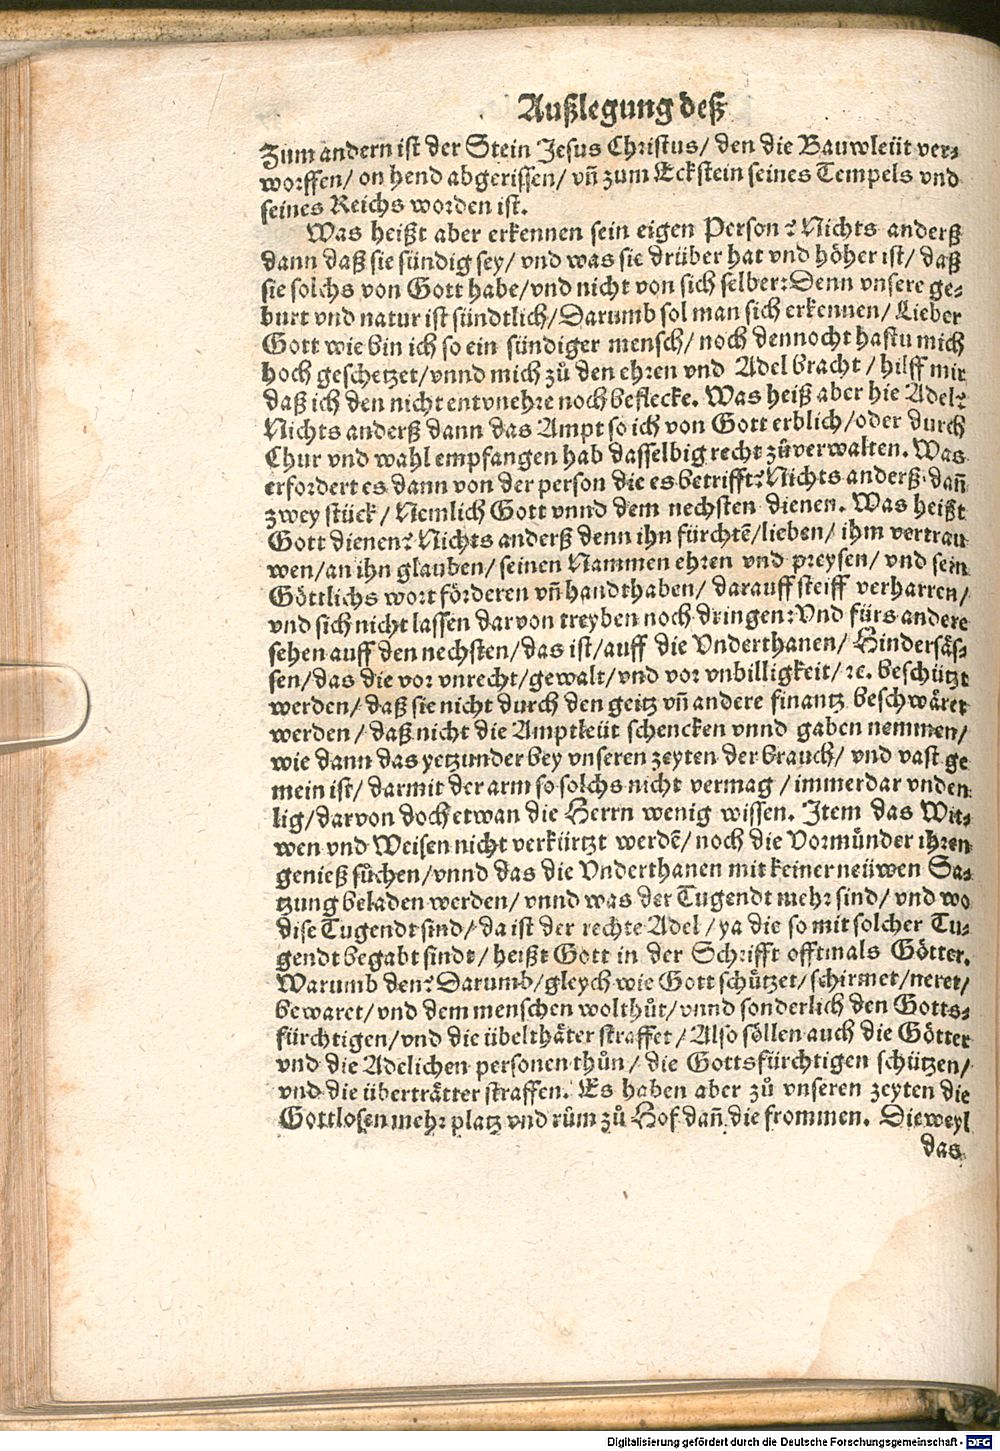 Außlegung deß
Zum andern ist der Stein Jesus Christus/ den die Bauwleüt ver-
worffen/ on hend abgerissen/ vñ zum Eckstein seines Tempels vnd
seines Reichs worden ist.
Was heißt aber erkennen sein eigen Person? Nichts anderß
dann daß sie sündig sey/ vnd was sie drüber hat vnd höher ist/ daß
sie solchs von Gott habe/ vnd nicht von sich selber: Denn vnsere ge-
burt vnd natur ist sündtlich/ Darumb sol man sich erkennen/ Lieber
Gott wie bin ich so ein sündiger mensch/ noch dennocht hastu mich
hoch geschetzet/ vnnd mich zů den ehren vnd Adel bracht/ hilff mir
daß ich den nicht entvnehre noch beflecke. Was heiß aber hie Adel?
Nichts anderß dann das Ampt so ich von Gott erblich/ oder durch
Chur vnd wahl empfangen hab dasselbig recht zůverwalten. Was
erfordert es dann von der person die es betrifft? Nichts anderß dañ
zwey stück/ Nemlich Gott vnnd dem nechsten dienen. Was heißt
Gott dienen? Nichts anderß denn ihn fürchtẽ/ lieben/ ihm vertrau
wen/ an ihn glauben/ seinen Nammen ehren vnd preysen/ vnd sein
Göttlichs wort förderen vñ handthaben/ darauff steiff verharren/
vnd sich nicht lassen darvon treyben noch dringen: Vnd fürs andere
sehen auff den nechsten/ das ist/ auff die Vnderthanen/ Hindersäs-
sen/ das die vor vnrecht/ gewalt/ vnd vor vnbilligkeit/ ꝛc. beschützt
werden/ daß sie nicht durch den geitz vñ andere finantz beschwäret
werden/ daß nicht die Amptleüt schencken vnnd gaben nemmen/
wie dann das yetzunder bey vnseren zeyten der brauch/ vnd vast ge
mein ist/ darmit der arm so solchs nicht vermag/ immerdar vnden
lig/ darvon doch etwan die Herrn wenig wissen. Item das Wit-
wen vnd Weisen nicht verkürtzt werdẽ/ noch die Vormünder ihren
genieß sůchen/ vnnd das die Vnderthanen mit keiner neüwen Sa-
tzung beladen werden/ vnnd was der Tugendt mehr sind/ vnd wo
dise Tugendt sind/ da ist der rechte Adel/ ya die so mit solcher Tu-
gendt begabt sindt/ heißt Gott in der Schrifft offtmals Götter.
Warumb den? Darumb/ gleych wie Gott schützet/ schirmet/ neret/
bewaret/ vnd dem menschen wolthůt/ vnnd sonderlich den Gotts-
fürchtigen/ vnd die übelthäter straffet/ Also söllen auch die Götter
vnd die Adelichen personen thůn/ die Gottsfürchtigen schützen/
vnd die überträtter straffen. Es haben aber zů vnseren zeyten die
Gottlosen mehr platz vnd rům zů Hof dañ die frommen. Dieweyl
das
Digitalisierung gefördert durch die Deutsche Forschungsgemeinschaft - DFG